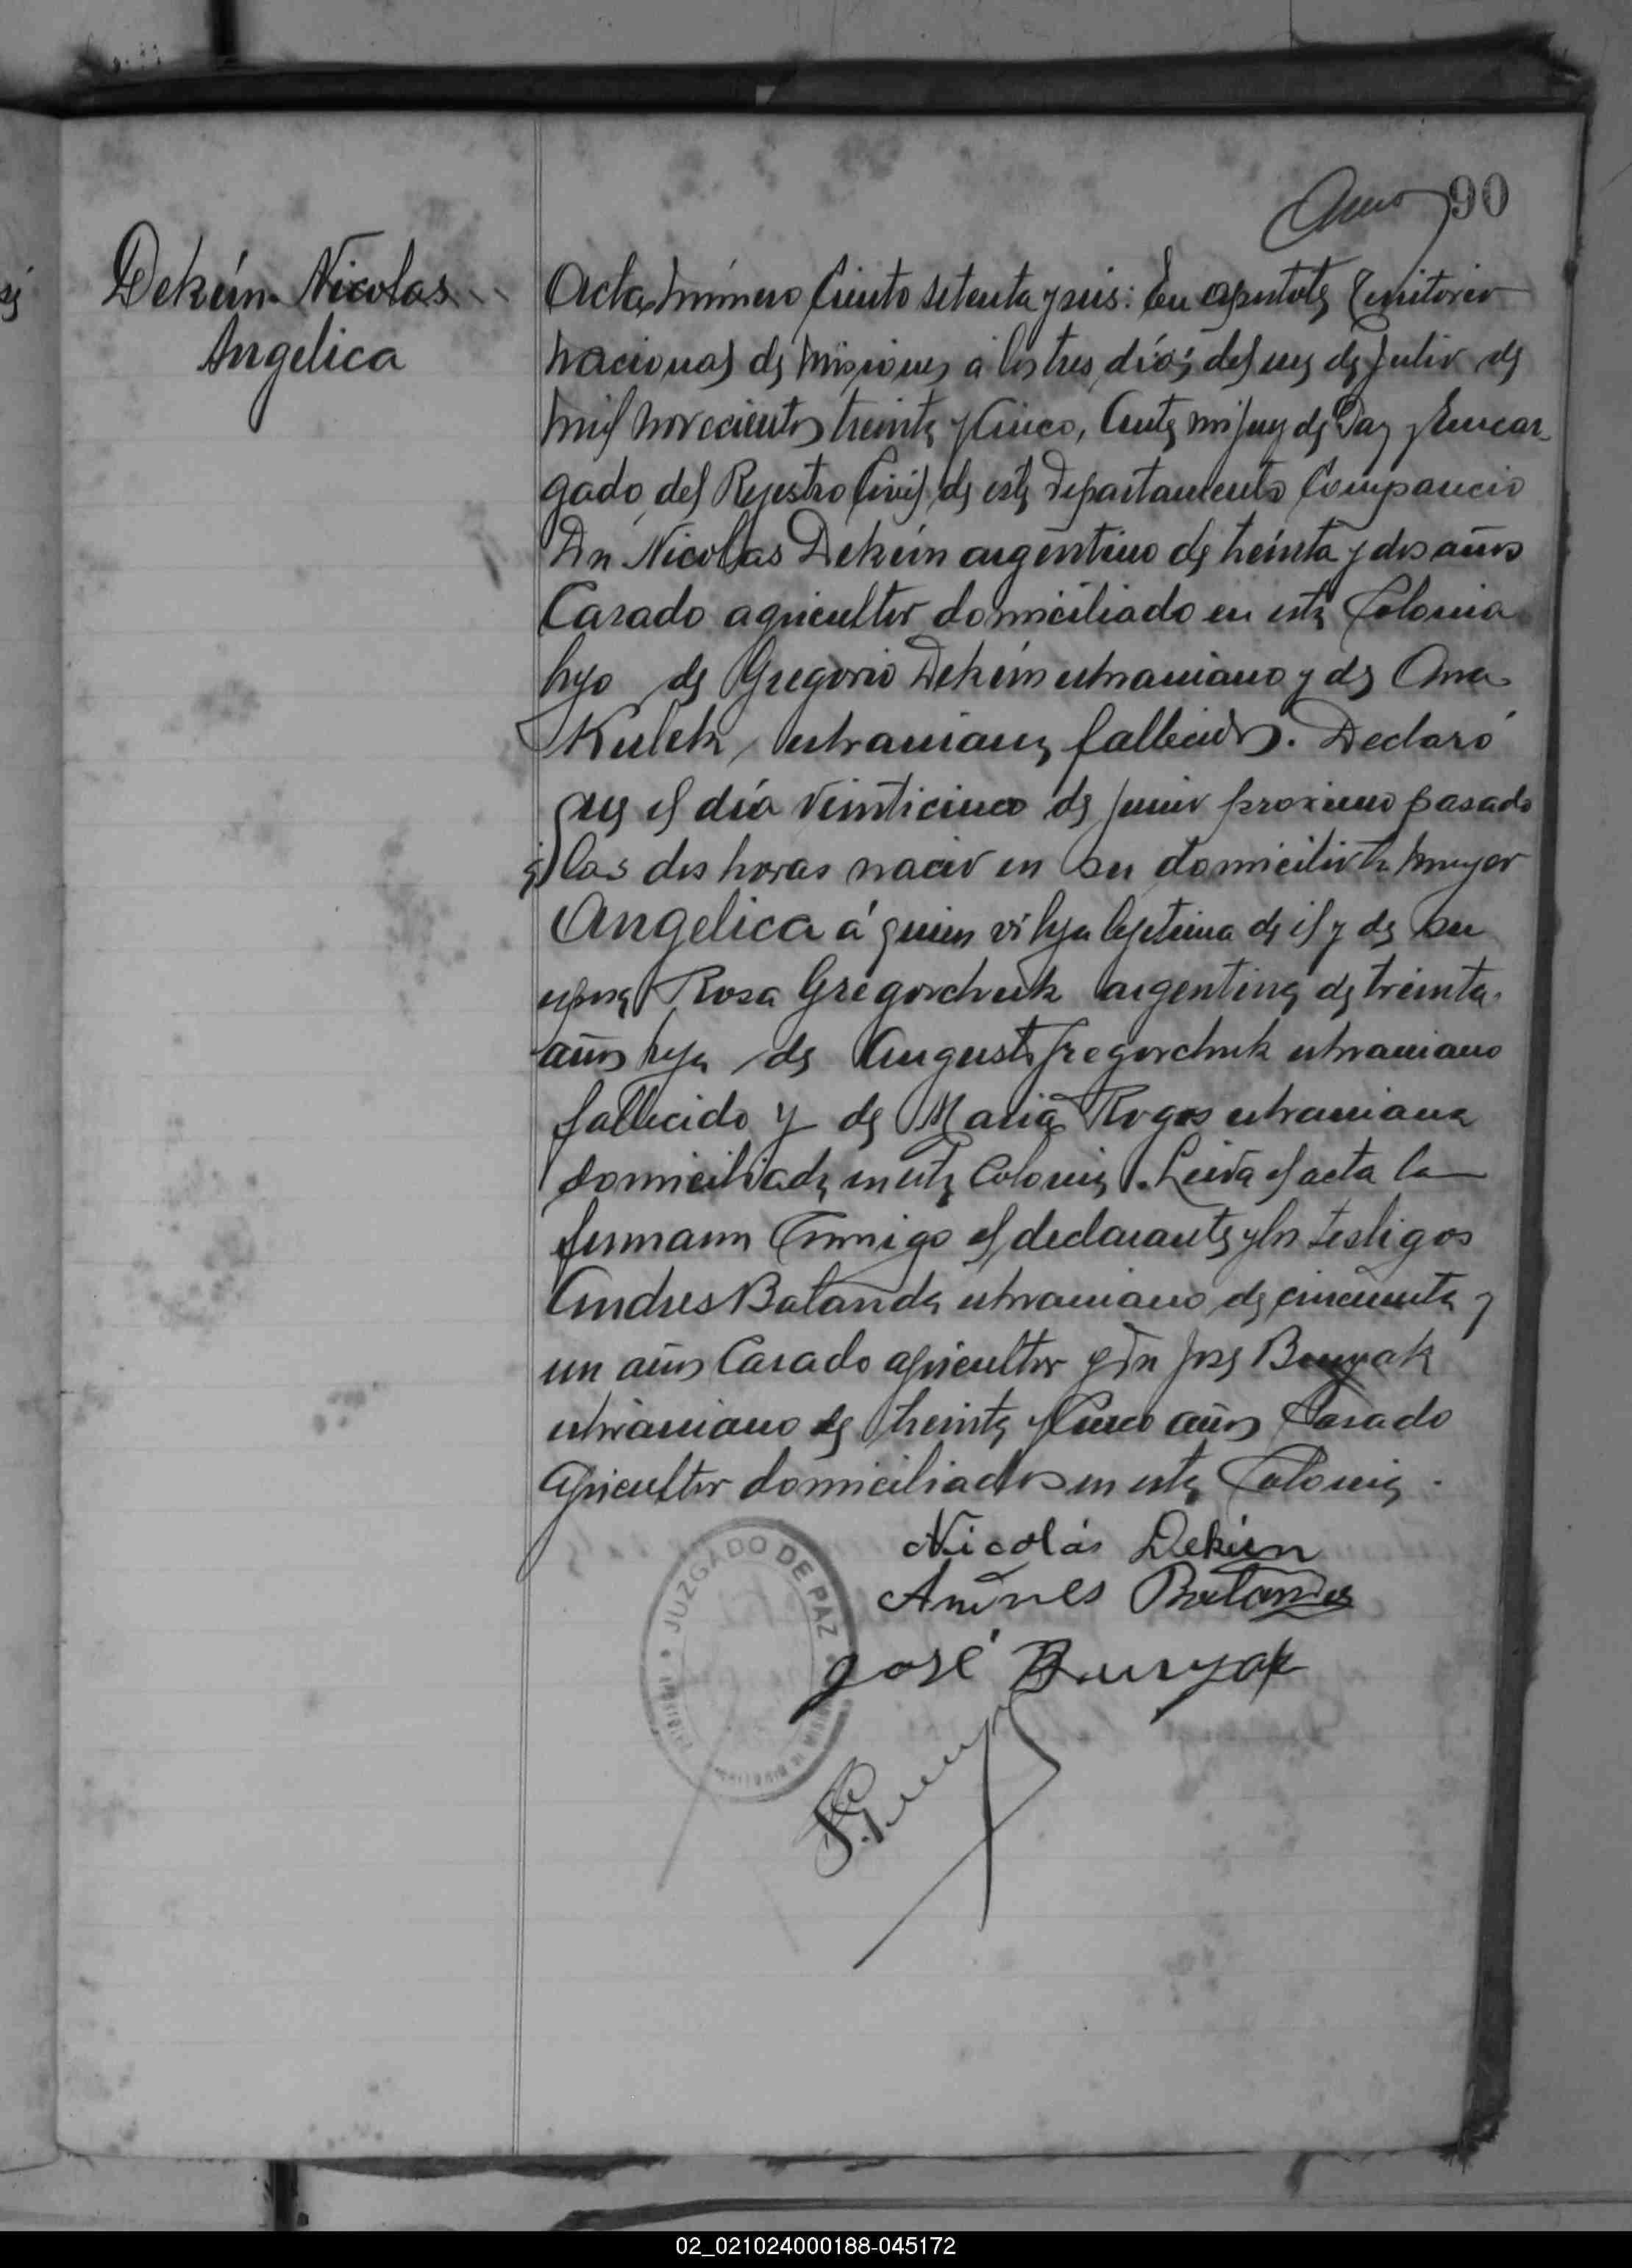 90
Dekún Nicolas
Angelica
Acta número Ciento setenta y seis: En apostoles Territorio
nacional de Misiones á los tres días del mes de Julio de
mil novecientos treinta y Cinco, Ante mi Juez de Paz y Encar-
gado del Rejestro Civil de este Departamento Compareció
Dn Nicolas Dekún argentino de treinta y dos años
Casado agricultor domiciliado en esta Colonia
hijo de Gregorio Dekún ukraniano y de Ana
Kulek, ukraniana, fallecidos. Declaró
que el día veinticinco de junio proximo pasado
á las dos horas nació en su domicilio la mujer
Angelica á quien vi hija lejitima de él y de su
esposa Rosa Gregorchuk argentina de treinta
años hija de Augusto Gregorchuk ukraniano
fallecido y de Maria Rogos ukraniana
domiciliada en esta Colonia. Leida el acta la
firmaron Conmigo el declarante y los testigos
Andres Batanda ukraniano de cincuenta y
un años Casado agricultor y Dn José Bunyak
ukraniano de treinta y Cinco años Casado
Agricultor domiciliados en esta Colonia.
Nicolás Dekún
Andres Batanda
José Bunyak
JUZGADO DE PAZ
02_021024000188-045172